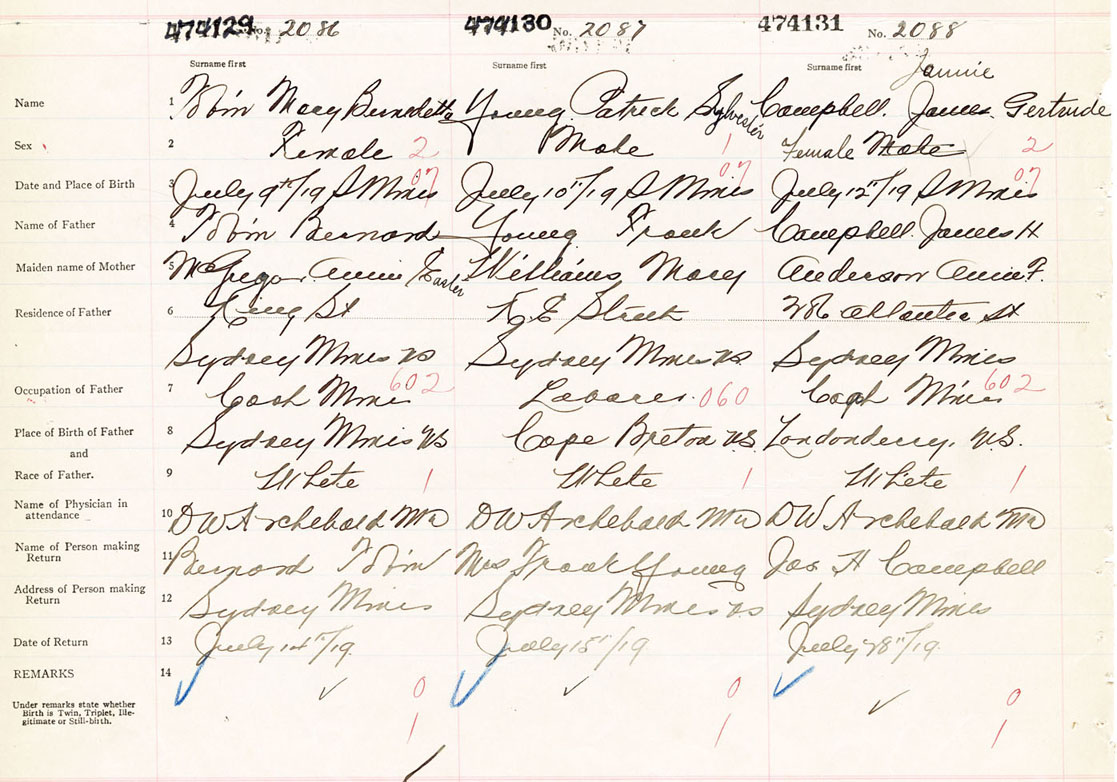 474129 No. 2086 474130 No. 2087 474131 No. 2088
Surname first Surname first Surname first Jannie
Name 1 Tobin Mary Bernadette Young Patrick Sylvester Campbell. James Gertrude
Sex 2 Female 2 Male 1 Female Male 2
Date and Place of Birth 3 July 9th/19 S Mines 07 July 10th/19 S Mines 07 July 12th/19 S Mines 07
Name of Father 4 Tobin Bernard Young Frank Campbell. James H
Maiden name of Mother 5 McGregor Annie Easter Williams Mary Anderson Annie F.
Residence of Father 6 King St K E Street 286 Atlantic St
Sydney Mines NS Sydney Mines NS Sydney Mines
Occupation of Father 7 Coal Miner 602 Laborer. 060 Coal Miner 602
Place of Birth of Father 8 Sydney Mines NS Cape Breton N.S. Londonderry, N.S.
and
Race of Father. 9 White 1 White 1 White 1
Name of Physician in
attendance 10 DW Archebald MD DW Archebald MD DW Archebald MD
Name of Person making
Return 11 Bernard Tobin Mrs Frank Young Jas H Campbell
Address of Person making
Return 12 Sydney Mines Sydney Mines NS Sydney Mines
Date of Return 13 July 14th/19 July 15th/19 July 28th/19
REMARKS 14
0 0 0
Under remarks state whether
Birth is Twin, Triplet, Ille-
gitimate or Still-birth. 1 1 1